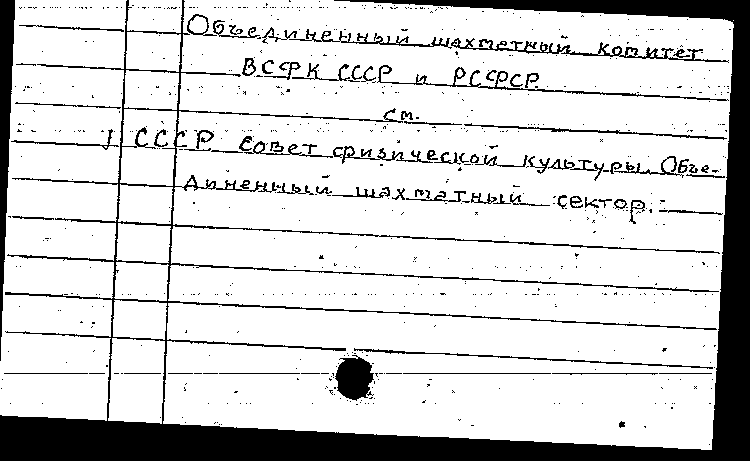 Объединенный шахматный комитет
ВСФК СССР и РСФСР
см.
СССР. Совет физической культуры. Объе-
диненный шахматный сектор.